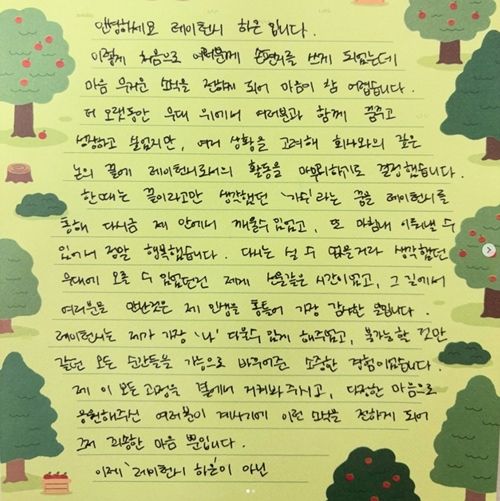 안녕하세요 레이턴시 하은 입니다.
이렇게 처음으로 여러분께 손편지를 쓰게 되었는데
마음 무거운 소식을 전하게 되어 마음이 참 어렵습니다.
더 오랫동안 무대 위에서 여러분과 함께 꿈꾸고
성장하고 싶었지만, 여러 상황을 고려해 회사와의 깊은
논의 끝에 레이턴시로서의 활동을 마무리하기로 결정했습니다.
한때는 끝이라고만 생각했던 '가수'라는 꿈을 레이턴시를
통해 다시금 제 안에서 깨울수 있었고, 또 마침내 이뤄낼 수
있어서 정말 행복했습니다. 다시는 설 수 없을거라 생각했던
무대에 오를 수 있었던건 제게 선물같은 시간이었고, 그 길에서
여러분들 만난것은 제 인생을 통틀어 가장 감사한 일입니다.
레이턴시는 제가 가장 '나' 다울수 있게 해주었고, 불가능할 것만
같던 모든 순간들을 가능으로 바꾸어준 소중한 경험이었습니다.
제 이 모든 과정을 곁에서 지켜봐 주시고, 다정한 마음으로
응원해주신 여러분이 계시기에 이런 소식을 전하게 되어
그저 죄송한 마음 뿐입니다.
이제 '레이턴시 하은'이 아닌